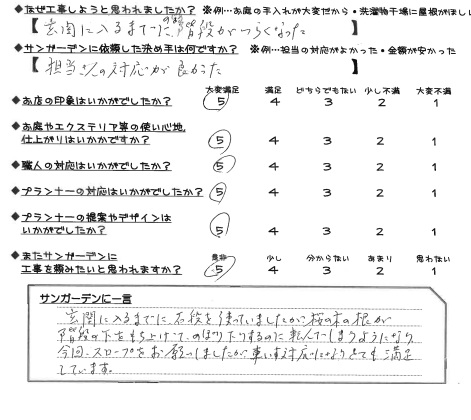 ◆なぜ工事しようと思われましたか? ※例…お庭の手入れが大変だから・洗濯物干場に屋根がほしい
【玄関に入るまでに、の階段がつらくなった 】
◆サンガーデンに依頼した決め手は何ですか? ※例…担当の対応がよかった・金額が安かった
【担当さんの対応が良かった 】
大変満足 満足 どちらでもない 少し不満 大変不満
◆お店の印象はいかがでしたか? 5 4 3 2 1
◆お庭やエクステリア等の使い心地、
仕上がりはいかかですか? 5 4 3 2 1
◆職人の対応はいかがでしたか? 5 4 3 2 1
◆プランナーの対応はいかがでしたか? 5 4 3 2 1
◆プランナーの提案やデザインは
いかがでしたか? 5 4 3 2 1
◆またサンガーデンに 是非 少し 分からない あまり 思わない
工事を頼みたいと思われますか? 5 4 3 2 1
サンガーデンに一言
玄関に入るまでに、石段を使っていましたが、桜の木の根が
階段の下をもち上げて、のぼり下りするのに転んでしまうようになり
今回、スロープをお願いしましたが、車いす対応にもなりとても満足
しています。